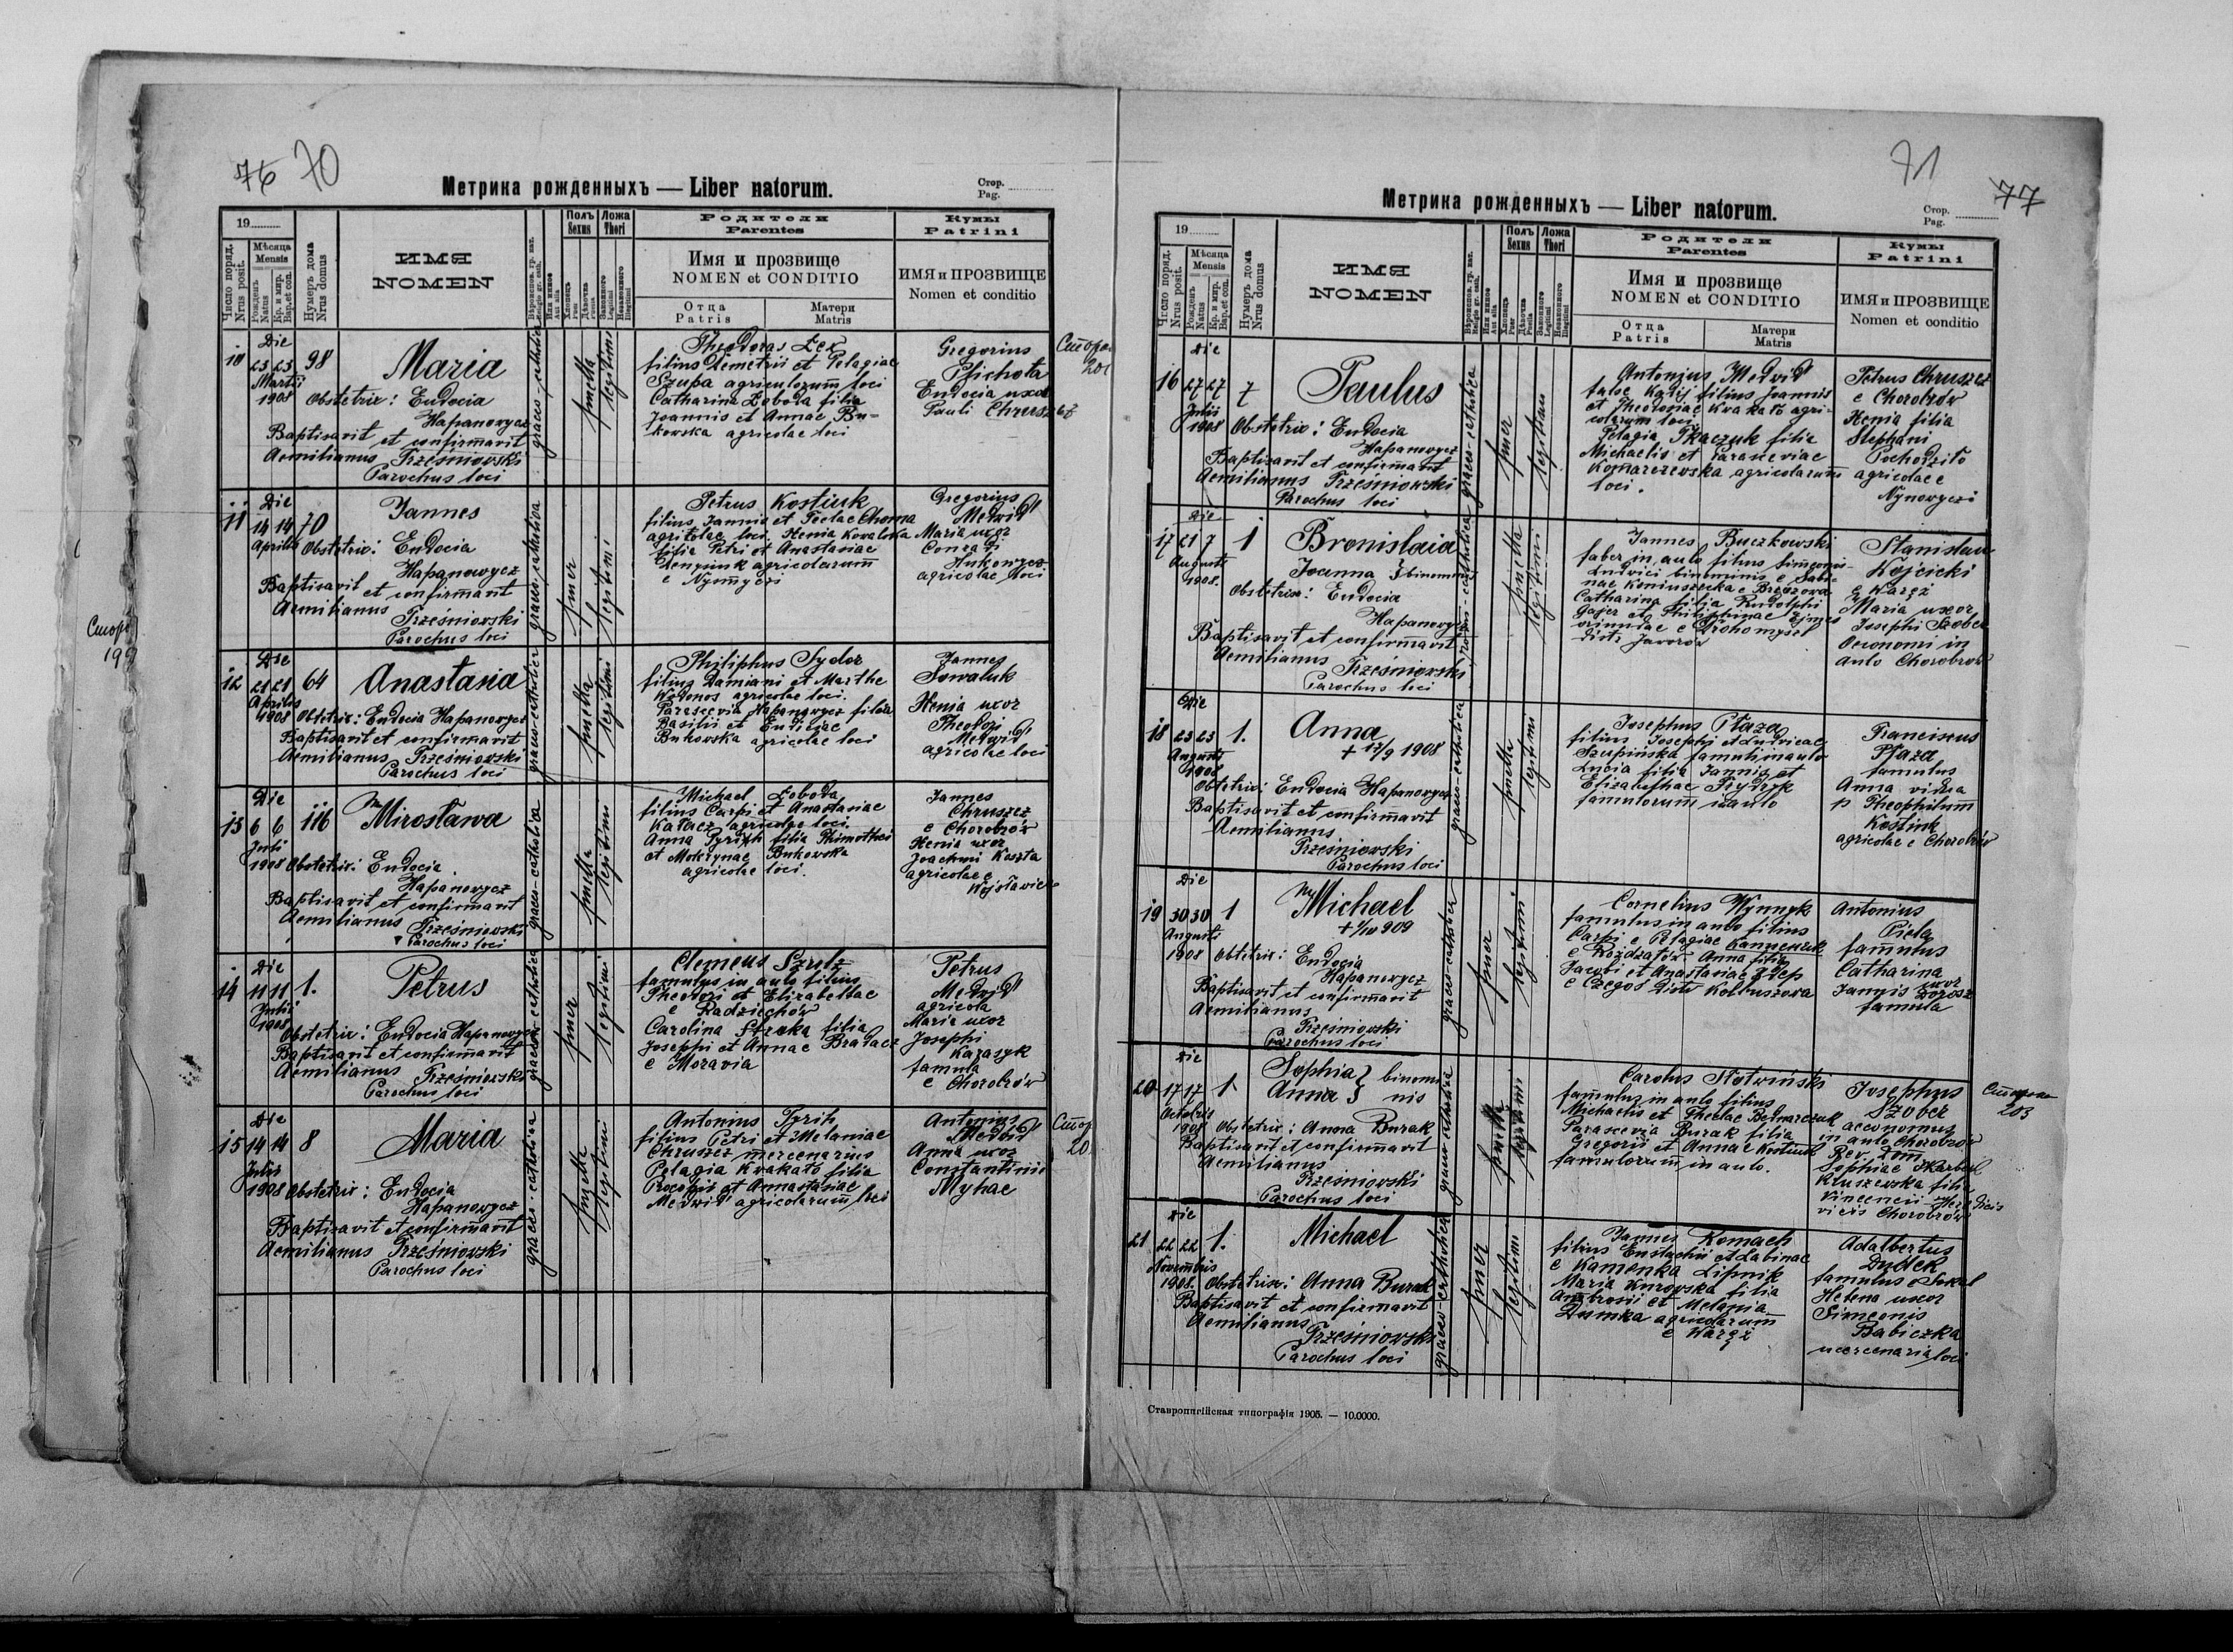 76 70
Метрика рожденныхъ — Liber natorum.
Стор.
Pag.
19
Число поряд.
Nrus posit.
Мѣсяца
Mensis
Рожденъ
Natus
Кр. и мир.
Bap. et con.
Нумеръ дома
Nrus domus
ИМЯ
NOMEN
Вѣроиспов. гр. кат.
Religio gr. cath.
Или инное
Aut alia
Полъ
Sexus
Хлопець
Puer
Дѣвочка
Puella
Ложа
Thori
Законного
Legitimi
Незаконного
Illegitimi
Родители
Parentes
Имя и прозвище
NOMEN et CONDITIO
Отца
Patris
Матери
Matris
Кумы
Patrini
ИМЯ и ПРОЗВИЩЕ
Nomen et conditio
10
Die
23 23
Martii
1908
98
Maria
Obstetrix: Eudocia
Hapanowycz
Baptisavit et confirmavit
Aemilianus Trześniowski
Parochus loci
graeco-catholica
puella
legitimi
Theodorus Lex
filius Demetrii et Pelagiae
Szupa agricolarum loci
Catharina Łoboda filia
Joannis et Annae Bu-
kowska agricolae loci
Gregorius
Plichota
Eudocia uxor
Pauli Chruszcz
Сторо
201
11
Die
14 14
Aprilis
70
Jannes
Obstetrix: Eudocia
Hapanowycz
Baptisavit et confirmavit
Aemilianus
Trześniowski
Parochus loci
graeco-catholica
puer
legitimi
Petrus Kostiuk
filius Jannis et Teclae Choma
agricolae loci. Xenia Kowalska
filia Petri et Anastasiae
Denysiuk agricolarum
e Nynyczi
Gregorius
Medwid
Maria uxor
Conradi
Hukowycz
agricolae loci
Сторо
199
12
Die
21 21
Aprilis
1908
64
Anastasia
Obstetrix: Eudocia Hapanowycz
Baptisavit et confirmavit
Aemilianus Trześniowski
Parochus loci
graeco-catholica
puella
legitimi
Philiphus Sydor
filius Damiani et Marthe
Wodonos agricolae loci.
Parascevia Hapanowycz filia
Basilii et Eudociae
Bukowska agricolae loci
Jannes
Sowaluk
Xenia uxor
Theodori
Medwid
agricolae loci
13
Die
6 6
Juli
1908
116
Mirosława
Obstetrix: Eudocia
Hapanowycz
Baptisavit et confirmavit
Aemilianus Trześniowski
Parochus loci
graeco-catholica
puella
legitimi
Michael Łoboda
filius Carpi et Anastasiae
Kałacz agricolae loci.
Anna Tyryh filia Thimothei
et Mokrynae Bukowska
agricolae loci.
Jannes
Chruszcz
e Chorobrów
Xenia uxor
Joachimi Koszta
agricolae e
Wojsławic
14
Die
11 11
Julii
1908
1.
Petrus
Obstetrix: Eudocia Hapanowycz
Baptisavit et confirmavit
Aemilianus Trześniowski
Parochus loci
graeco-catholica
puer
legitimi
Clemens Szulz
famulus in aulo filius
Theodori et Elizabethae
e Radziechów
Carolina Straka filia
Josephi et Annae Bradacz
e Moravia
Petrus
Medwid
agricola
Maria uxor
Josephi
Karasyk
famula
e Chorobrów
15
Die
14 14
Julii
1908
8
Maria
Obstetrix: Eudocia
Hapanowycz
Baptisavit et confirmavit
Aemilianus Trześniowski
Parochus loci
graeco-catholica
puella
legitimi
Antonius Tyrih
filius Petri et Melaniae
Chruszcz mercenarius
Pelagia Kwakato filia
Procopii et Annastasiae
Medwid agricolarum loci
Antonius
Medwid
Anna uxor
Constantinii
Myhac
Стор
20
71 77
Метрика рожденныхъ — Liber natorum.
Стор.
Pag.
19
Число поряд.
Nrus posit.
Мѣсяца
Mensis
Рожденъ
Natus
Кр. и мир.
Bap. et con.
Нумеръ дома
Nrus domus
ИМЯ
NOMEN
Вѣроиспов. гр. кат.
Religio gr. cath.
Или инное
Aut alia
Полъ
Sexus
Хлопець
Puer
Дѣвочка
Puella
Ложа
Thori
Законного
Legitimi
Незаконного
Illegitimi
Родители
Parentes
Имя и прозвище
NOMEN et CONDITIO
Отца
Patris
Матери
Matris
Кумы
Patrini
ИМЯ и ПРОЗВИЩЕ
Nomen et conditio
16
Die
27 27
Julii
1908
7
Paulus
Obstetrix: Eudocia
Hapanowycz
Baptisavit et confirmavit
Aemilianus Trześniowski
Parochus loci
graeco-catholica
puer
legitimi
Antonius Medwid
false Kalij filius Joannis
et Theodoniae Kwakato agri-
colarum loci.
Pelagia Tkaczuk filia
Michaelis et Parasceviae
Komarczewska agricolarum
loci.
Petrus Chruszcz
e Chorobrów
Xenia filia
Stephani
Pochodziło
agricolae e
Nynowyczi
17
Die
21 7
Augusti
1908.
1
Bronislaia
Joanna } binominis
Obstetrix: Eudocia
Hapanowycz
Baptisavit et confirmavit
Aemilianus
Trześniowski
Parochus loci
puella
legitimi
Jannes Buczkowski
faber in aulo filius Simeonis-
Ludvici binominis e Sabi-
nae Koniuszecka e Brzozowa
Catharina filia Rudolphi
Gajer et Philiphinae
oriundae e Drohomyśl
distr Jaworów
Stanislaus
Wojcicki
e Waręż
Maria uxor
Josephi Szober
Oeconomi in
aulo Chorobrów
18
Die
23 23
Augusti
1908
1.
Anna
+ 17/9 1908
Obstetrix: Eudocia Hapanowycz
Baptisavit et confirmavit
Aemilianus
Trześniowski
Parochus loci
graeco-catholica
puella
legitimi
Josephus Płaza
filius Josephi et Ludvicae
Szupińska famuli in aulo
Lucia filia Jannis et
Elizabethae Frydryk
famulorum in aulo
Franciscus
Płaza
famulus
Anna vidua
p Theophilum
Kostiuk
agricolae e Chorobrów
19
Die
30 30
Augusti
1908
1
Michael
+ 1/10 909
Obstetrix: Eudocia
Hapanowycz
Baptisavit et confirmavit
Aemilianus
Trześniowski
Parochus loci
graeco-catholica
puer
legitimi
Cornelius Wynnyk
famulus in aulo filius
Carpi e Pelagiae
e Rozdzałów Anna filia
Jacobi et Anastasiae
e Czegos distr Kolbuszowa
Antonius
Piela
famulus
Catharina
uxor
Jannis Dorosz
famula
20
Die
17 17
Octobris
1908
1.
Sophia
Anna } binominis
Obstetrix: Anna Burak
Baptisavit et confirmavit
Aemilianus
Trześniowski
Parochus loci
graeco-catholica
puella
legitimi
Carolus Słotwiński
famulus in aulo filius
Michaelis et Theclae Bednarczuk
Parascevia Burak filia
Gregorii et Annae Kostiuk
famulorum in aulo.
Josephus
Szober
aeconomus
in aulo Chorobrów
Rev. Dom.
Sophiae Skarbek
Kruszewska filia
Vincencii
Chorobrów
Сторона
203
21
Die
22 22
Novembris
1908
1.
Michael
Obstetrix: Anna Burak
Baptisavit et confirmavit
Aemilianus
Trześniowski
Parochus loci
graeco-catholica
puer
legitimi
Jannes Komach
filius Eustachii et Sabinae
e Kamenka Lipnik
Maria Kurowska filia
Ambrosii et Melania
Dumka agricolarum
e Waręż
Adalbertus
Dudek
famulus e Sokal
Helena uxor
Simeonis
Babiczka
mercenaria loci
Ставропигійская типографія 1905. — 10.0000.